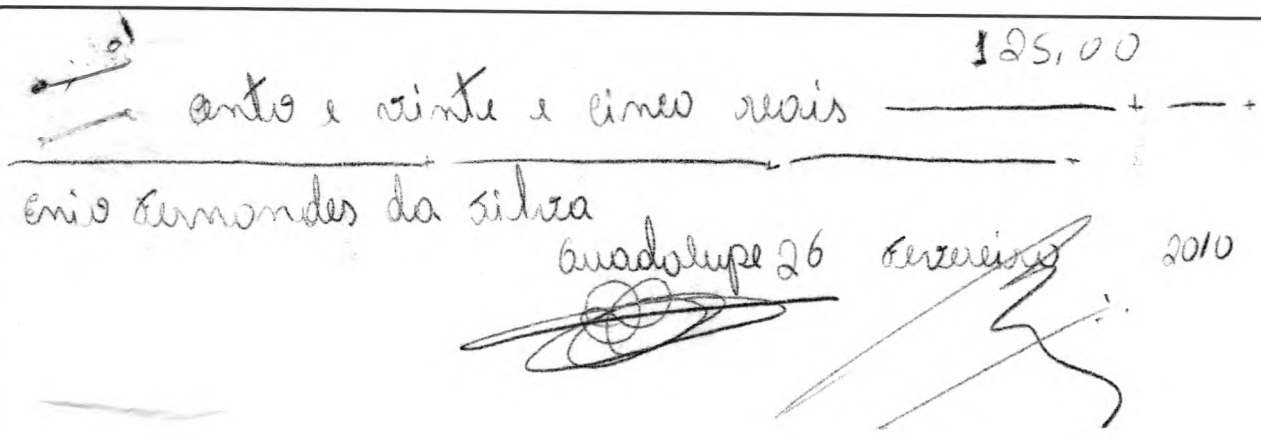 125,00
cento e vinte e cinco reais
Enio Fernandes da Silva
Guadalupe 26 Fevereiro 2010